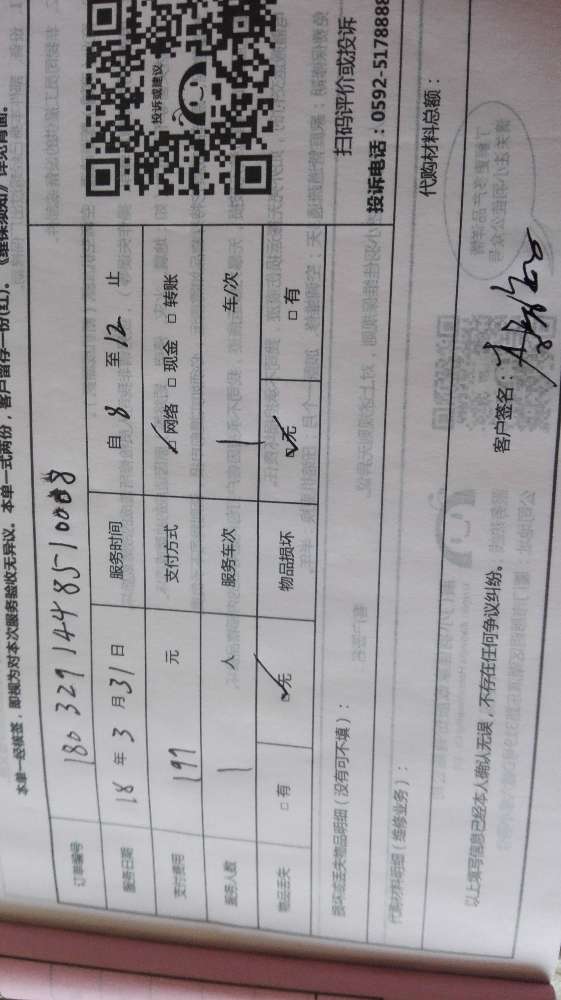 本单一经核签，即视为对本次服务验收无异议。本单一式两份，客户留存一份(红)。《维保须知》详见背面。
订单编号 180329144851000
服务日期 18 年 3 月 31 日 服务时间 自 8 至 12 止
支付费用 197 元 支付方式 ☑网络 □现金 □转账
服务人数 1 人 服务车次 1 车/次
物品丢失 □有 ☑无 物品损坏 ☑无 □有
投诉或建议
扫码评价或投诉
投诉电话：0592-5178888
损坏或丢失物品明细（没有可不填）：
代购材料明细（维修业务）： 代购材料总额：
以上填写信息已经本人确认无误，不存在任何争议纠纷。 客户签名：